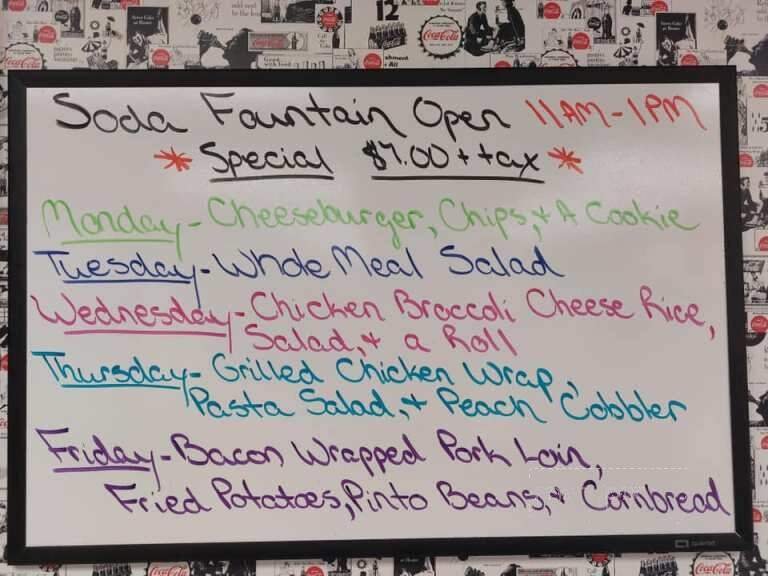 Soda Fountain Open 11AM-1PM
* Special $7.00 + tax *
Monday - Cheeseburger, Chips, + A Cookie
Tuesday - Whole Meal Salad
Wednesday - Chicken Broccoli Cheese Rice,
Salad, + a Roll
Thursday - Grilled Chicken Wrap,
Pasta Salad, + Peach Cobbler
Friday - Bacon Wrapped Pork Loin,
Fried Potatoes, Pinto Beans, + Cornbread
quartet
Coca-Cola